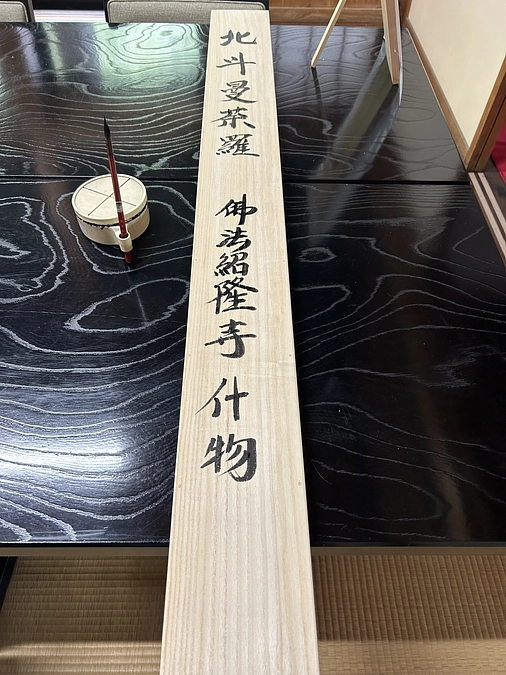 北斗曼荼羅 佛法紹隆寺 什物